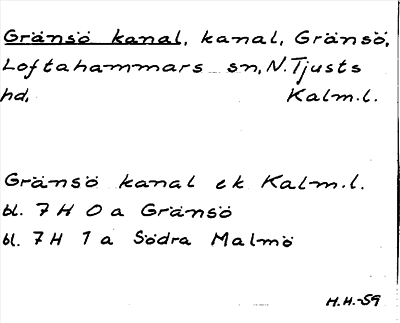 Gränsö kanal, kanal, Gränsö,
Loftahammars sn, N. Tjusts
hd, Kalm.l.
Gränsö kanal ek Kalm.l.
bl. 7 H 0 a Gränsö
bl. 7 H 1 a Södra Malmö
H.H.-59